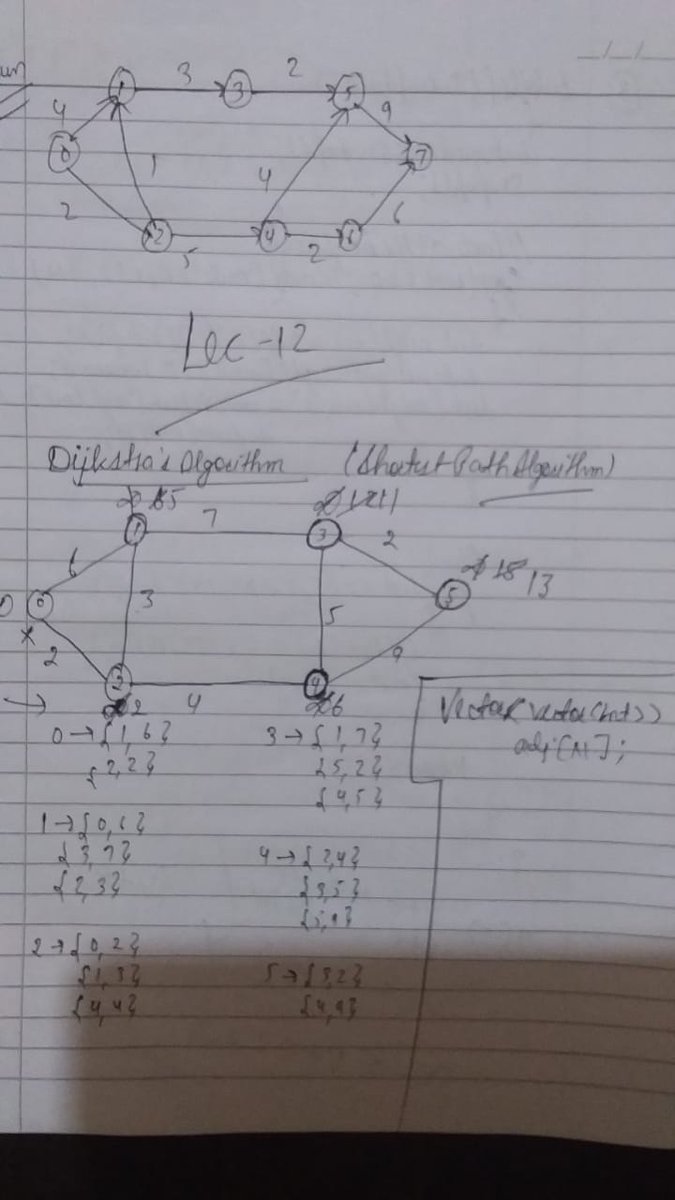 3 2
1 3 5
4 9
0 1 4 7
2 6
2 4 6
5 2
Lec-12
Dijkstra's Algorithm (Shortest Path Algorithm)
5 11
1 7 3 2
6 13
0 3 5 5
2 9
2 4 4
2 6
Vector<vector<int>>
adj[N];
0→{1,6}
{2,2}
1→{0,6}
{3,7}
{2,3}
2→{0,2}
{1,3}
{4,4}
3→{1,7}
{5,2}
{4,5}
4→{2,4}
{3,5}
{5,9}
5→{3,2}
{4,9}